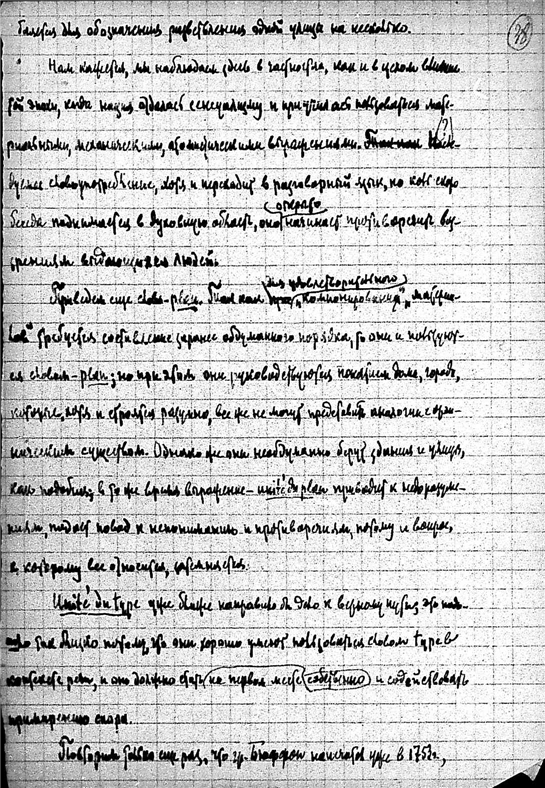 38
бляется для обозначения разветвления одной улицы на несколько.
Нам кажется, мы наблюдаем здесь в частности, как и в целом влияние
той эпохи, когда нация отдалась сенсуализму и приучилась пользоваться мате-
риальными, механическими, атомистическими выражениями.
дуемое словоупотребление, хотя и переходит в разговорный язык, но когда ско
беседа поднимается в духовную область, оно открыто начинает противоречить воз-
зрениям выдающихся людей.
Приведем еще слово plan. Так как для удовлетворительного „компонирования“ матери-
алов требуется составление заранее обдуманного порядка, то они и пользуют-
ся словом plan; но при этом они руководствуются понятием дома, города,
которые, хотя и строятся разумно, все же не могут представить аналогии с орга-
ническим существом. Однако же они необдуманно берут здания и улицы,
как подобия; в то же время выражение unité du plan приводит к недоразуме-
ниям, подает повод к непониманию и противоречиям, потому и вопрос,
к которому все относится, затемняется.
Unité du type уже ближе направило бы дело к верному пути; это
так близко потому, что они хорошо умеют пользоваться словом type в
контексте речи, и оно должно стать на первом месте собственно и содействовать
примирению спора.
Повторим только еще раз, что гр. Бюффон напечатал уже в 1753 г.,